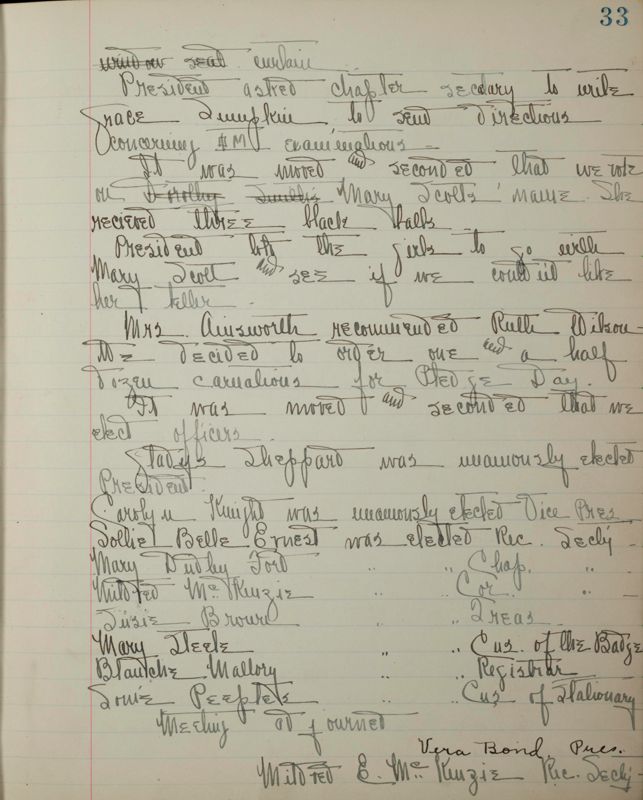 33
window seat curtain
President asked chapter secdary to write
Grace Lumpkin to send directions
concerning $M examinations -
It was moved and seconded that we vote
on Dorothy Smith's Mary Scotts' name. She
recieved three black balls.
President told the girls to go with
Mary Scott and see if we couldn't like
her better.
Mrs. Ainsworth recommended Ruth Wilson -
We decided to order one and a half
dozen carnations for Pledge Day.
It was moved and seconded that we
elect officers.
Gladys Sheppard was unamously elected
President.
Carolyn Knight was unamously elected Vice Pres
Sollie Belle Ernest was elected Rec. Sec'y -
Mary Dudley Ford " " Chap. " -
Mildred McKenzie " " Cor. " -
Susie Brown " " Treas.
Mary Steele " " Cus. of the Badge
Blanche Mallory " " Registrar
Louie Peeples " " Cus of Stationary
Meeting adjourned
Vera Bond, Pres.
Mildred E. McKenzie Rec. Sec'y -